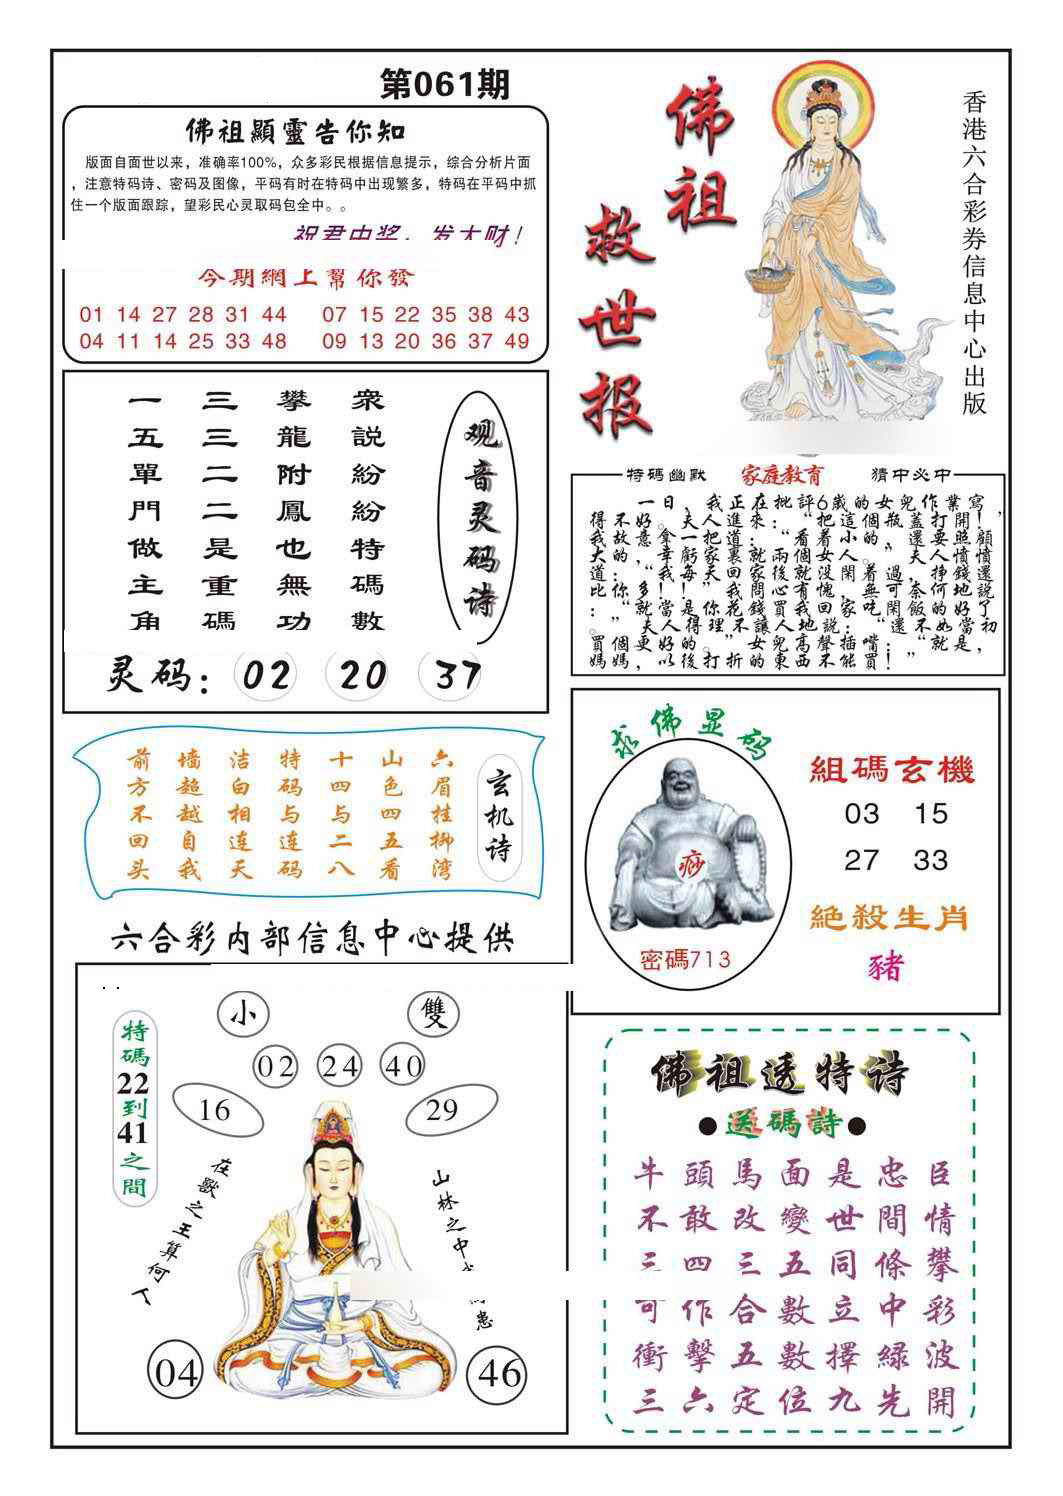 第061期
佛祖顯靈告你知
版面自面世以来，准确率100%，众多彩民根据信息提示，综合分析片面
，注意特码诗、密码及图像，平码有时在特码中出现繁多，特码在平码中抓
住一个版面跟踪，望彩民心灵取码包全中。。
祝君中奖，发大财！
今期網上幫你發
01 14 27 28 31 44 07 15 22 35 38 43
04 11 14 25 33 48 09 13 20 36 37 49
佛祖
救世报
香港六合彩券信息中心出版
观音灵码诗
衆説紛紛特碼數
攀龍附鳳也無功
三三二二是重碼
一五單門做主角
灵码：02 20 37
特碼幽默 家庭教育 猜中必中
一日，我正在批評6歲的女兒作業寫
得不好。夫人進來：“把這個瓶蓋打開！
玄机诗
六眉挂柳湾
山色四五看
十四与二八
特码与连码
洁白相连天
墙超越自我
前方不回头
求佛显码
密碼713
組碼玄機
03 15
27 33
絕殺生肖
豬
六合彩内部信息中心提供
小 雙
02 24 40
16 29
特碼22到41之間
在獸之王算何人
山林之中
患
04 46
佛祖透特诗
●送碼詩●
牛頭馬面是忠臣
不敢改變世間情
三四三五同條攀
可作合數立中彩
衝擊五數擇緑波
三六定位九先開